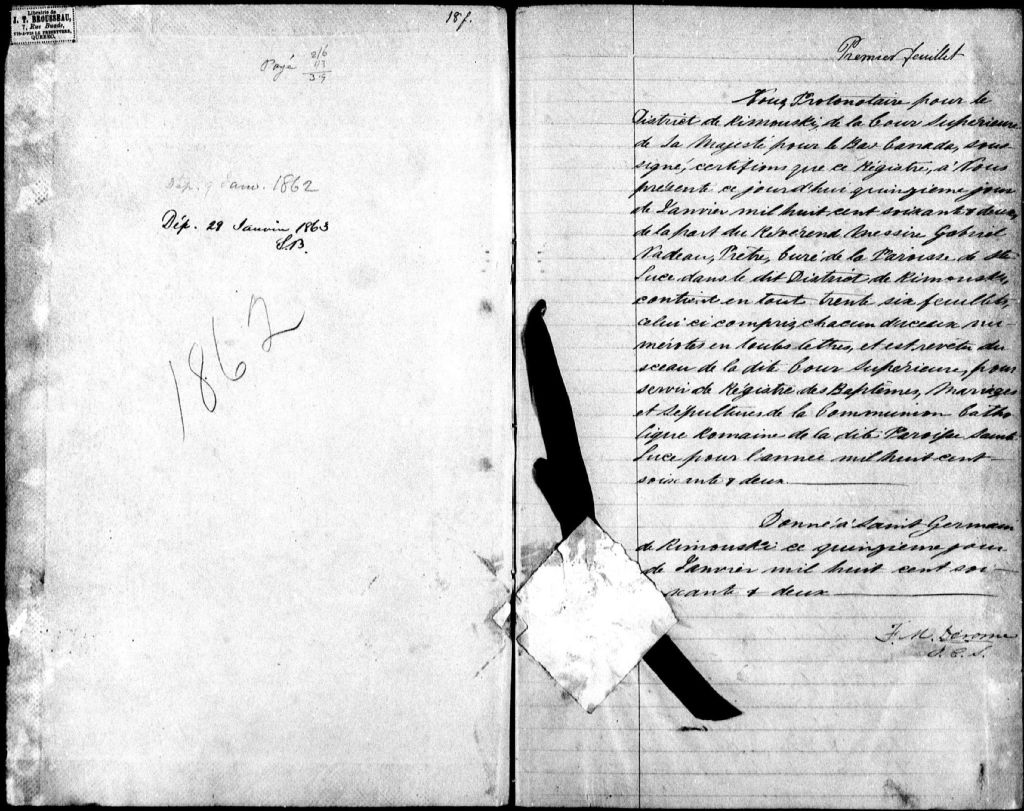 Librairie de
J. T. BROUSSEAU,
7, Rue Buade,
VIS-A-VIS LE PRESBYTERE,
QUEBEC.
18 f.
Payé 2/6
3.9
Dép. 9 Janv. 1862
Dép. 29 Janvier 1863
1862
Premier feuillet
Nous Protonotaire pour le
District de Rimouski, de la Cour Supérieure
de Sa Majesté pour le Bas Canada, sous-
signé, certifions que ce Régistre, à Nous
présenté ce jourd'hui quinzième jour
de Janvier mil huit cent soixante & deux,
de la part du Révérend Messire Gabriel
Nadeau, Prêtre, Curé de la Paroisse de Ste
Luce dans le dit District de Rimouski,
contient en tout trente six feuillets,
celui ci compris, chacun d'iceux nu-
mérotés en toutes lettres, et est revêtu du
sceau de la dite Cour Supérieure, pour
servir de Régistre des Baptêmes, Mariages
et Sépultures de la Communion Catho
lique Romaine de la dite Paroisse Sainte
Luce pour l'année mil huit cent
soixante & deux
Donné à Saint Germain
de Rimouski ce quinzième jour
de Janvier mil huit cent soi-
xante & deux
F. M. Derome
P. C. S.